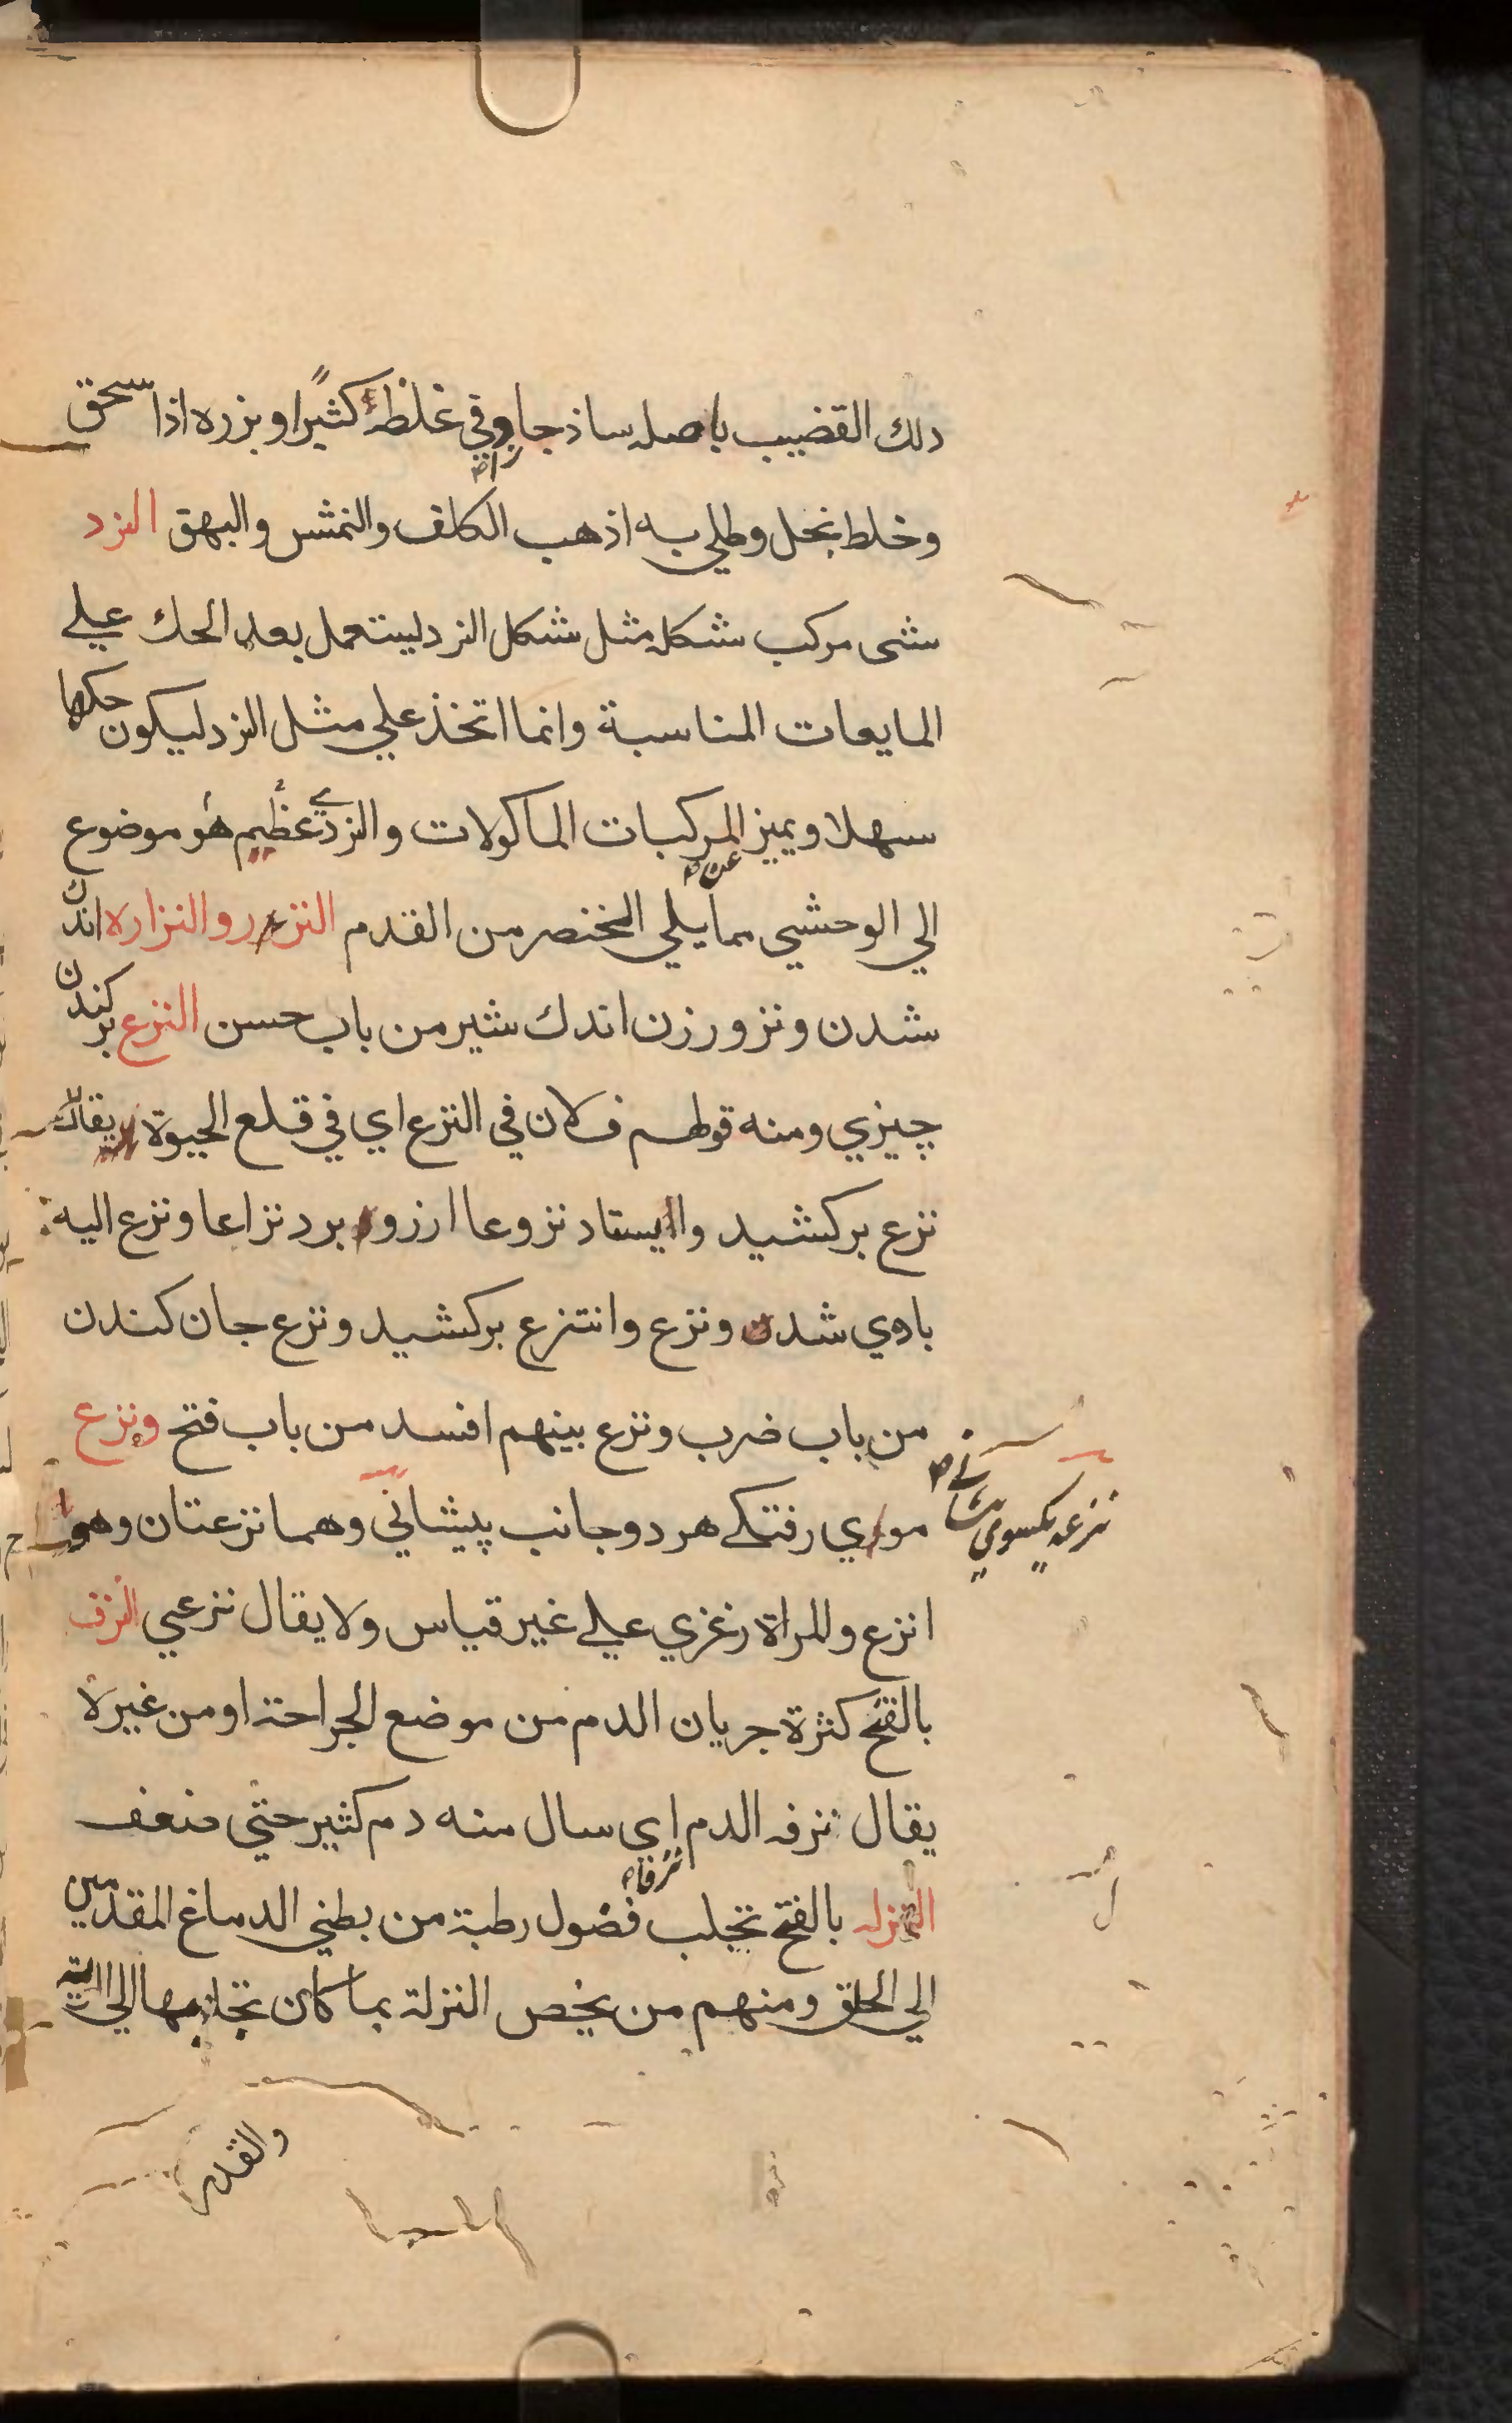 دلك القضيب باصله ساذجا وفي غلظه كثيرا وبزره اذا سحق
زاد
وخلط بخل وطلي به اذهب الكلف والنمش والبهق النرد
شى مركب شكله مثل شكل النرد ليستعمل بعد الحك علي
المايعات المناسبة وانما اتخذ علي مثل النرد ليكون حكها
سهلا ويميز المركبات الماكولات والنردي عظيم هو موضوع
عن
الي الوحشي مما يلي الخنصر من القدم النزر والنزاره اندك
شدن ونزور زن اندك شير من باب حسن النزع بركندن
چيزي ومنه قولهم فلان في النزع اي في قلع الحيوة يقال
نزع بركشيد وا ايستاد نزوعا ارزو برد نزاعا ونزع اليه
باوي شد ونزع وانتزع بركشيد ونزع جان كندن
من باب ضرب ونزع بينهم افسد من باب فتح ونزع
موي رفتكے هر دو جانب پيشاني وهما نزعتان وهو
نزعه يكسوي
انزع وللمراة زعزي علے غير قياس ولا يقال نزعي النزف
بالفتح كثرة جريان الدم من موضع الجراحة او من غيره
يقال نزفه الدم اي سال منه دم كثير حتي ضعف
نزفاه
النزله بالفتح تجلب فضول رطبة من بطني الدماغ المقدمين
الي الحلق ومنهم من يخص النزلة بما كان تجلبها الي الرية
والقدر